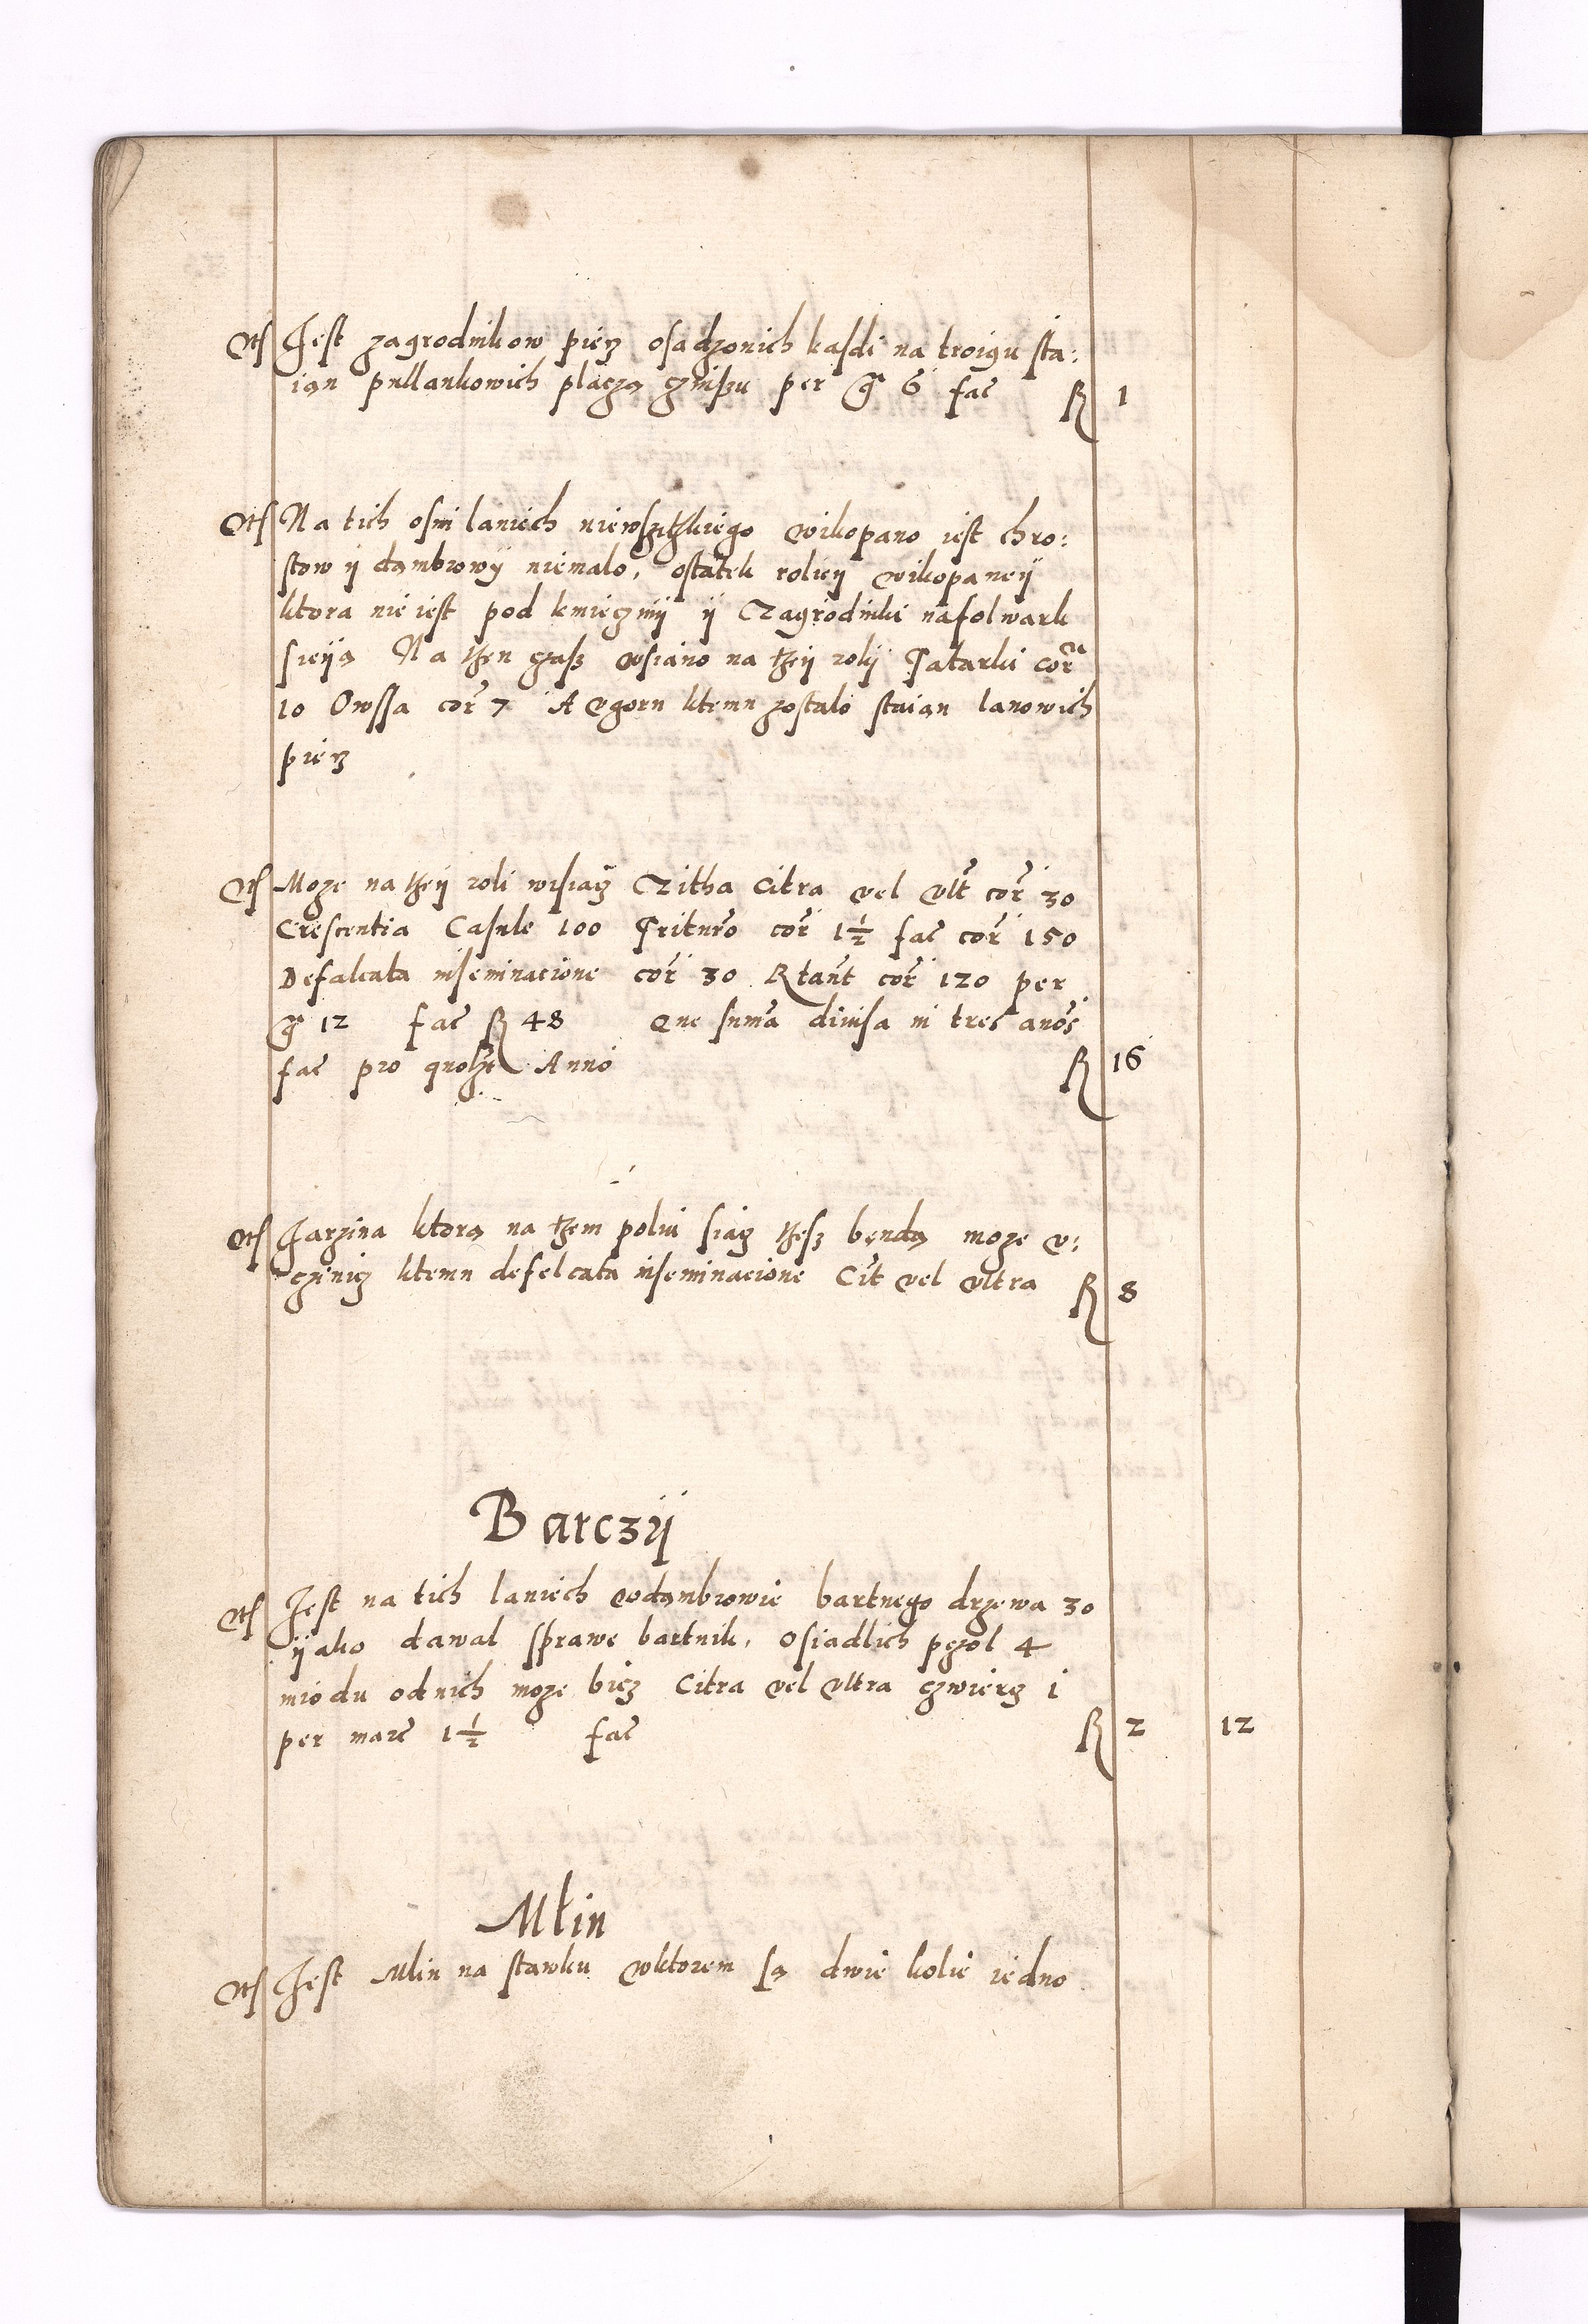 Jest zagrodnikow piecz osadzonich kasdi na troigu sta:
ian pullankowich placzą czinszu per gr 6 fac R 1
Na tich osmi laniech niewszitkiego wikopano iest chro:
stow ij dąmbrowij niemalo, ostatek roliej wikopaneij
ktora nie iest pod kmieczmij ij Zagrodniki nafolwark
sieiją Na then czasz wsiano na theij rolij Tatarki cor
10 Owssa cor 7 A vgoru ktemu zostalo staian lanowich
piecz
Moze na theij roli wisiacz Zitha Citra vel vlt cor 30
Crescentia Casule 100 Trituro cor 1½ fac cor 150
Defalcata inseminacione cor 30 Rtant cor 120 per
gr 12 fac R 48 Que suma diuisa in tres anos
fac pro quolzt Anno R 16
Jarzina ktorą na them poliu siacz thesz bendą moze v:
czinicz ktemu defelcata inseminacione Cit vel vltra R 8
Barczij
Jest na tich laniech wdąmbrowie bartnego drzewa 30
ijako dawal sprawe bartnik, osiadlich pczol 4
miodu odnich moze bicz Citra vel vltra czwiercz 1
per marc 1½ fac R 2 12
Młin
Jest Mlin na stawku wktorem są dwie kolie iedno